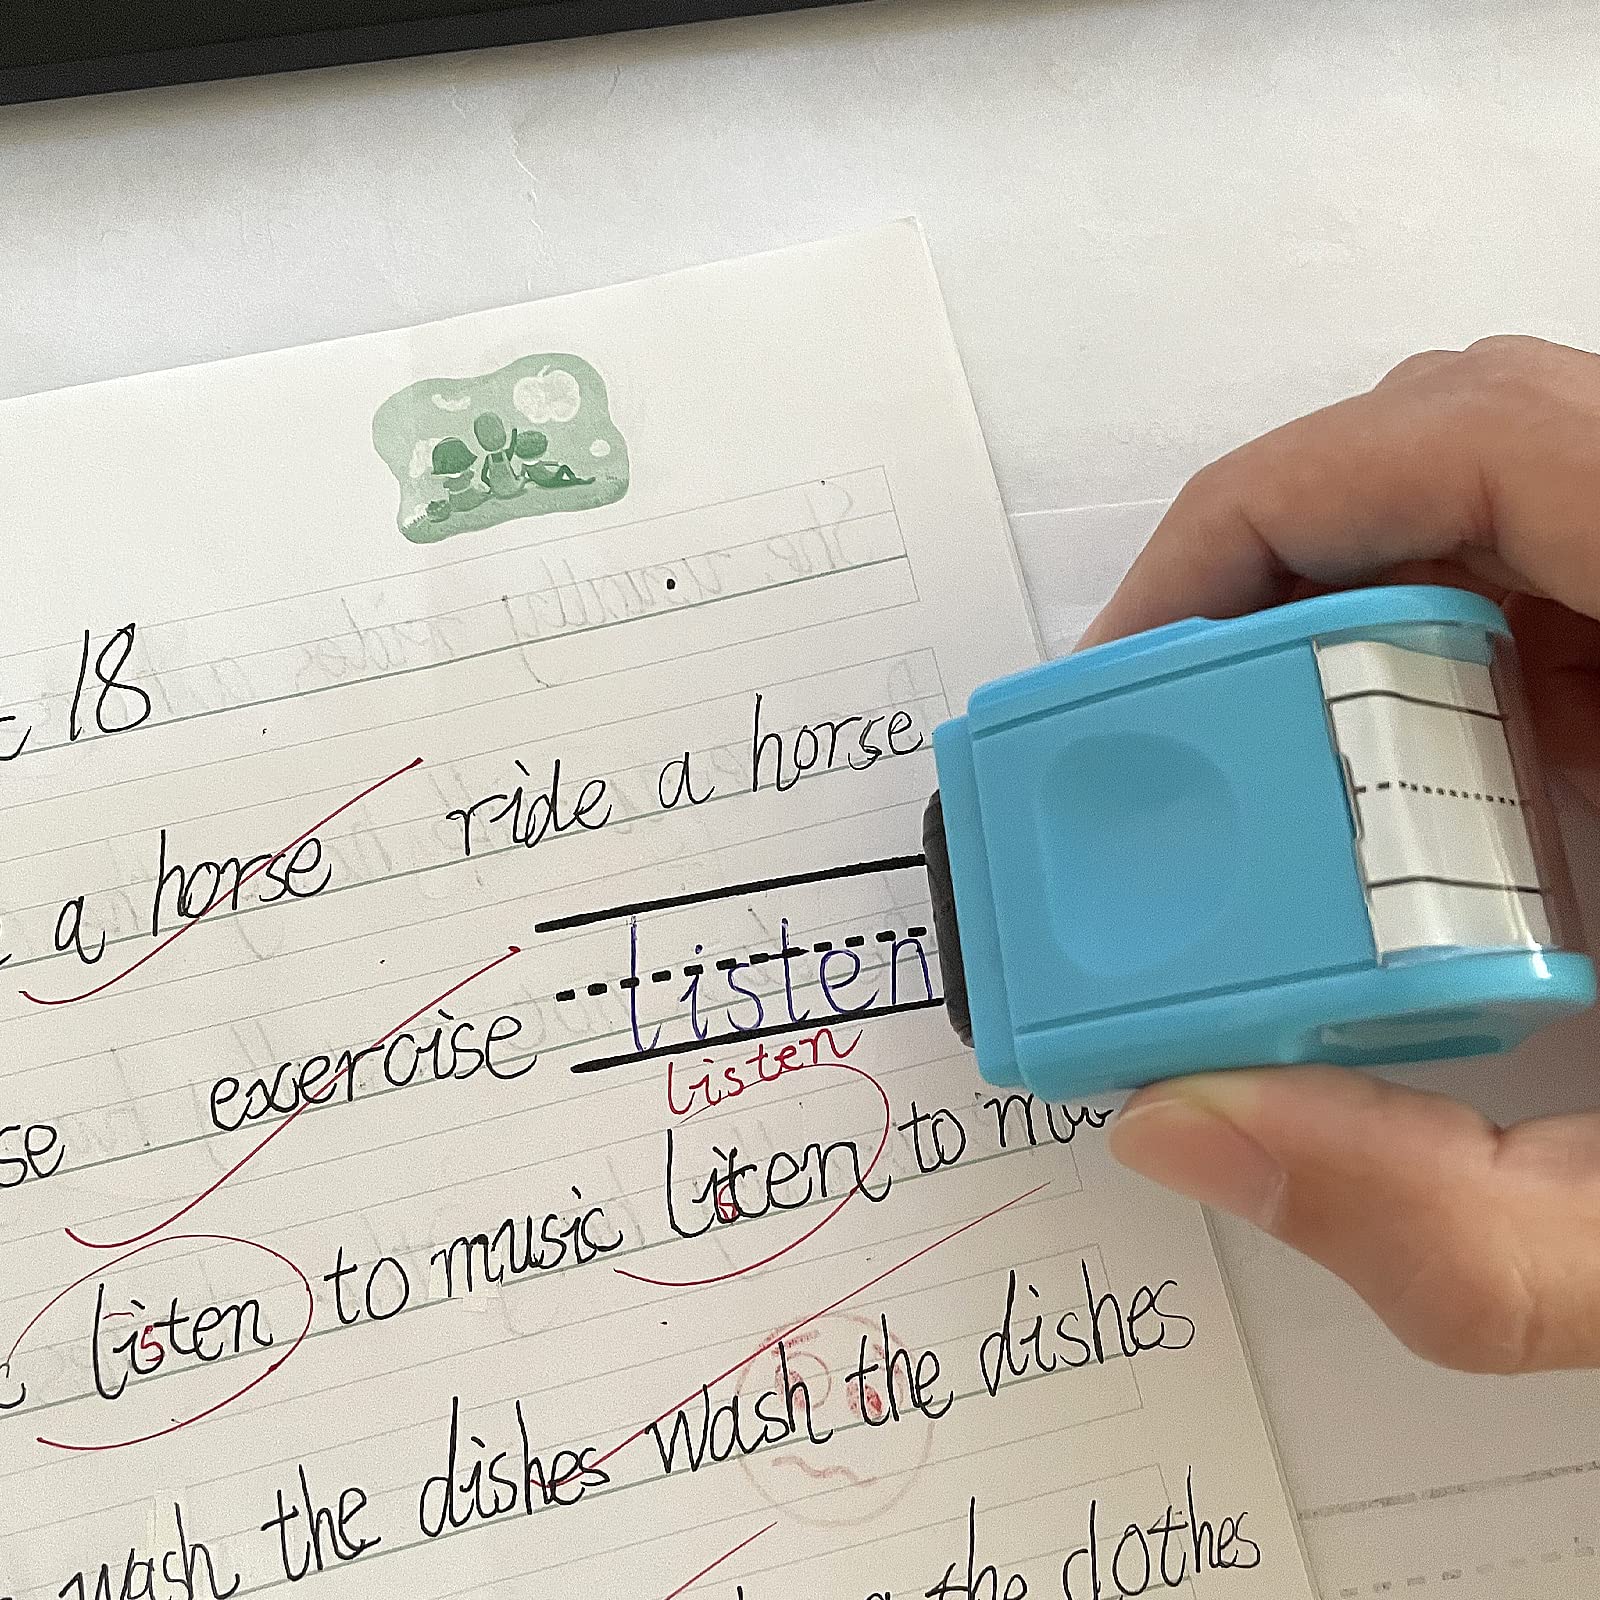 18
a horse ride a horse
listen
exercise
listen
se
listen to music liten to mu
s
wash the dishes wash the dishes
the clothes